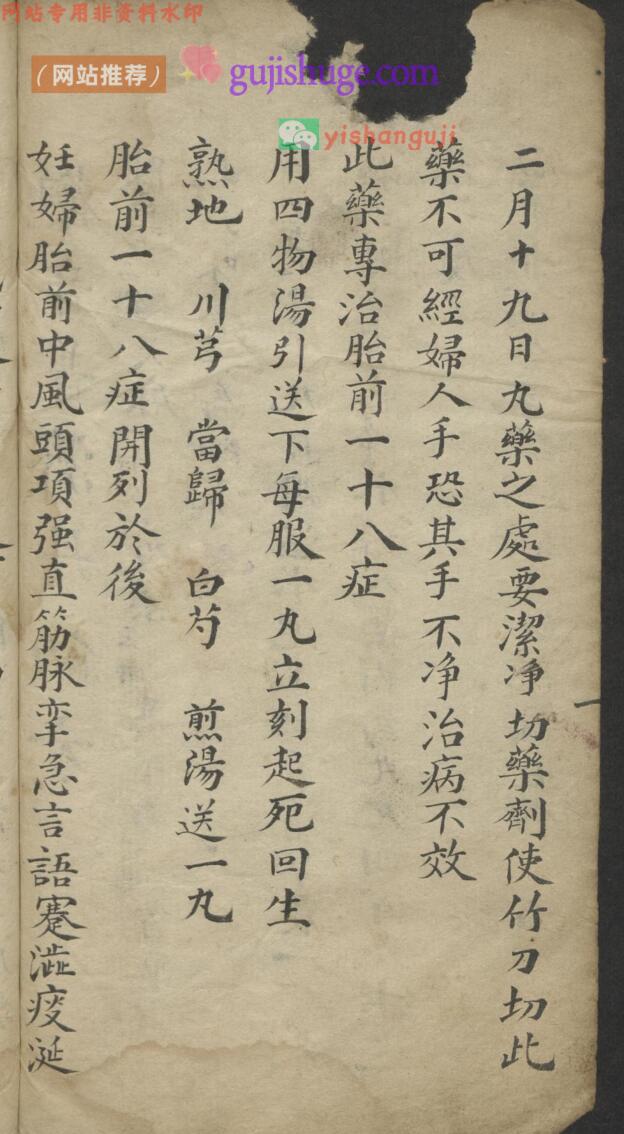 网站专用非资料水印
（网站推荐）
gujishuge.com
yishanguji
二月十九日丸藥之處要潔净切藥劑使竹刀切此
藥不可經婦人手恐其手不净治病不效
此藥專治胎前一十八症
用四物湯引送下每服一丸立刻起死回生
熟地 川芎 當歸 白芍 煎湯送一丸
胎前一十八症開列於後
妊婦胎前中風頭項强直筋脉挛急言語蹇澁痰涎